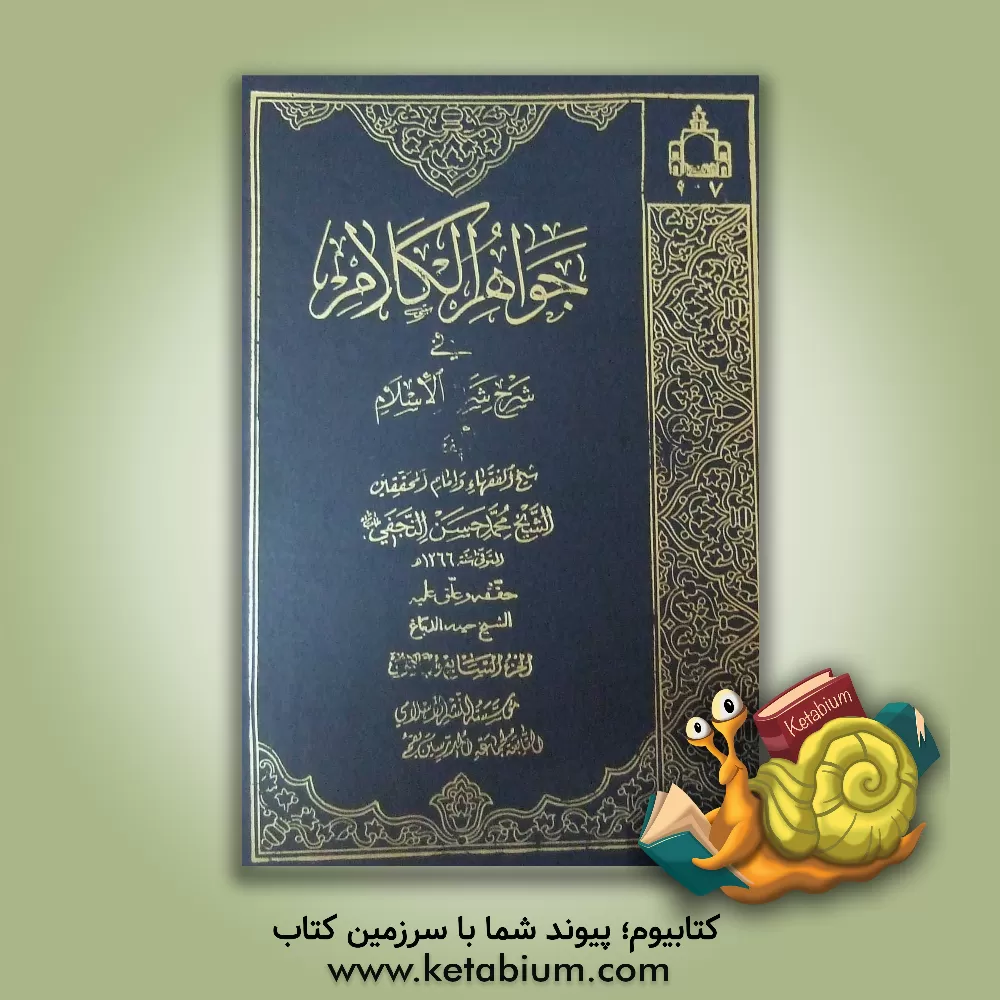 ٩٠٧
جَوَاهِرُ الْكَلَامِ
في
شَرْحِ الْإِسْلَامِ
شيخ الفقهاء وإمام المحققين
الشيخ محمد حسن النجفي
المتوفى سنة ١٢٦٦هـ
حققه وعلق عليه
الشيخ حيدر الدباغ
الجزء السابع
مؤسسة النشر الإسلامي
التابعة لجماعة المدرسين بقم
Ketabium
کتابیوم؛ پیوند شما با سرزمین کتاب
www.ketabium.com